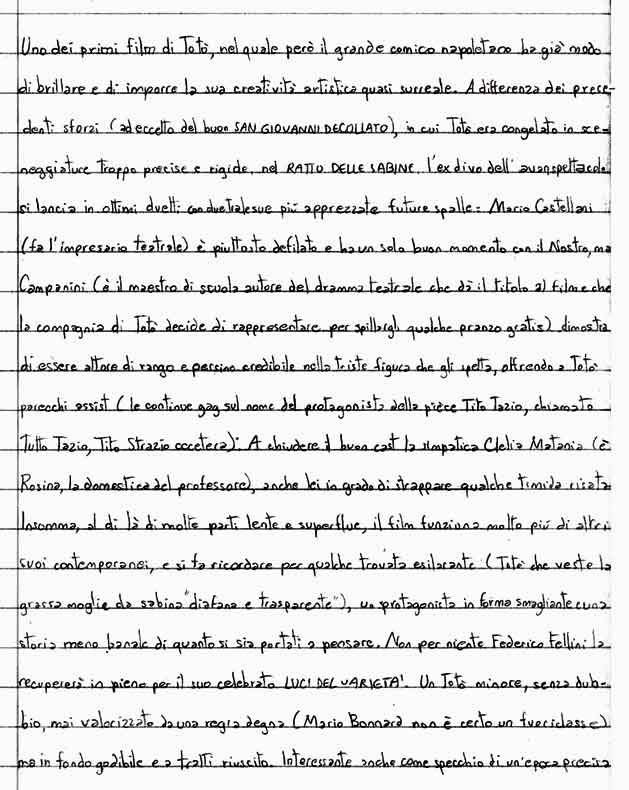 Uno dei primi film di Totò, nel quale però il grande comico napoletano ha già modo
di brillare e di imporre la sua creatività artistica quasi surreale. A differenza dei prece-
denti sforzi (ad eccetto del buon SAN GIOVANNI DECOLLATO), in cui Totò era congelato in sce-
neggiature troppo precise e rigide, nel RATTO DELLE SABINE l'ex divo dell'avanspettacolo
si lancia in ottimi duetti con due tra le sue più apprezzate future spalle: Mario Castellani
(fa l'impresario teatrale) è piuttosto defilato e ha un solo buon momento con il Nostro, ma
Campanini (è il maestro di scuola autore del dramma teatrale che dà il titolo al film e che
la compagnia di Totò decide di rappresentare per spillargli qualche pranzo gratis) dimostra
di essere attore di rango e persino credibile nella triste figura che gli spetta, offrendo a Totò
parecchi assist (le continue gag sul nome del protagonista della pièce Tito Tazio, chiamato
Tutto Tazio, Tito Strazio eccetera). A chiudere il buon cast la simpatica Clelia Matania (è
Rosina, la domestica del professore), anche lei in grado di strappare qualche timida risata
Insomma, al di là di molte parti lente e superflue, il film funziona molto più di altri
suoi contemporanei, e si fa ricordare per qualche trovata esilarante (Totò che veste la
grassa moglie da sabina "diafana e trasparente"), un protagonista in forma smagliante e una
storia meno banale di quanto si sia portati a pensare. Non per niente Federico Fellini la
recupererà in pieno per il suo celebrato LUCI DEL VARIETA'. Un Totò minore, senza dub-
bio, mai valorizzato da una regia degna (Mario Bonnard non è certo un fuoriclasse)
ma in fondo godibile e a tratti riuscito. Interessante anche come specchio di un'epoca precisa